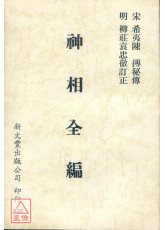 宋 希夷陳 摶秘傳
明 柳莊袁忠徹訂正
神相全編
新文豐出版公司 印行